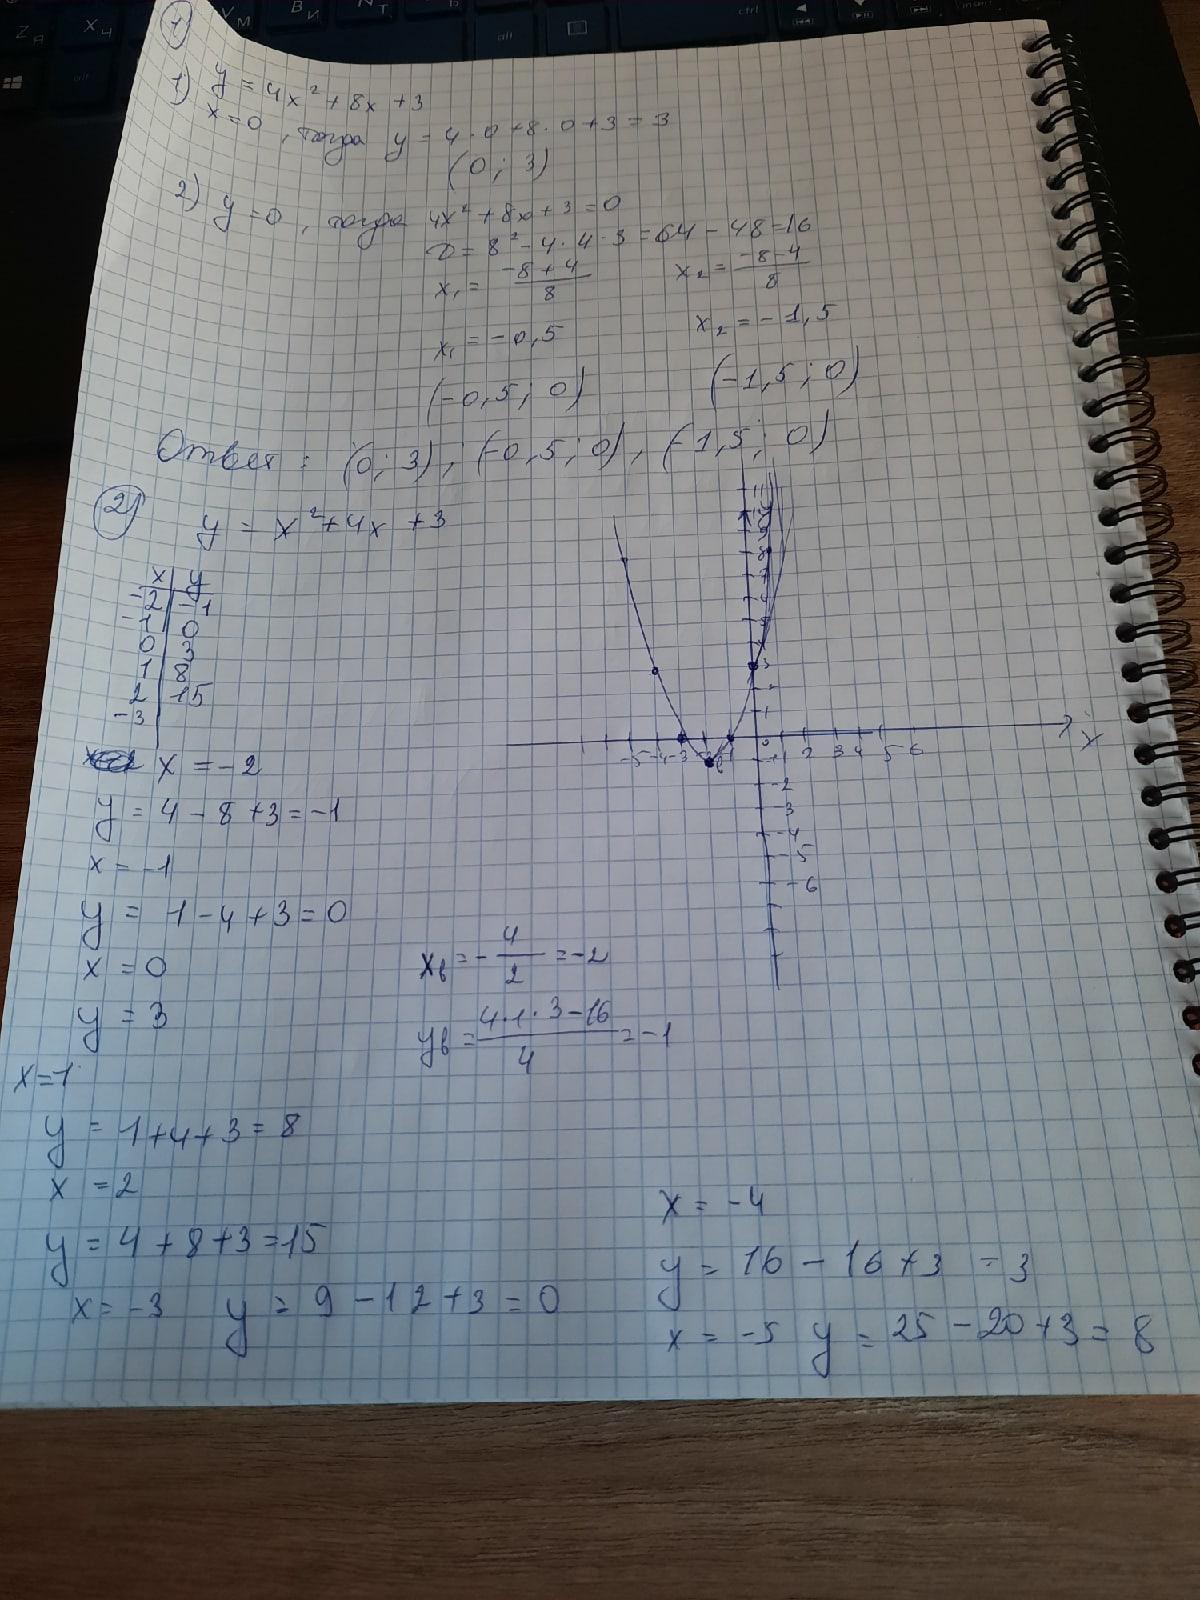 1
1) y = 4x² + 8x + 3
x = 0, тогда y = 4 · 0 + 8 · 0 + 3 = 3
(0; 3)
2) y = 0, тогда 4x² + 8x + 3 = 0
D = 8² - 4 · 4 · 3 = 64 - 48 = 16
x₁ = (-8 + 4)/8    x₂ = (-8 - 4)/8
x₁ = -0,5    x₂ = -1,5
(-0,5; 0)    (-1,5; 0)
Ответ: (0; 3), (-0,5; 0), (-1,5; 0)
2
y = x² + 4x + 3
x | y
-2 | -1
-1 | 0
0 | 3
1 | 8
2 | 15
-3
x = -2
y = 4 - 8 + 3 = -1
x = -1
y = 1 - 4 + 3 = 0
x = 0
y = 3
x = 1
y = 1 + 4 + 3 = 8
x = 2
y = 4 + 8 + 3 = 15
x = -3    y = 9 - 12 + 3 = 0
xв = -4/2 = -2
yв = (4 · 1 · 3 - 16)/4 = -1
x = -4
y = 16 - 16 + 3 = 3
x = -5    y = 25 - 20 + 3 = 8
8
3
1
-5 -4 -3 -1 0 1 2 3 4 5 6
x
-1
-2
-3
-4
-5
-6
alt
ctrl